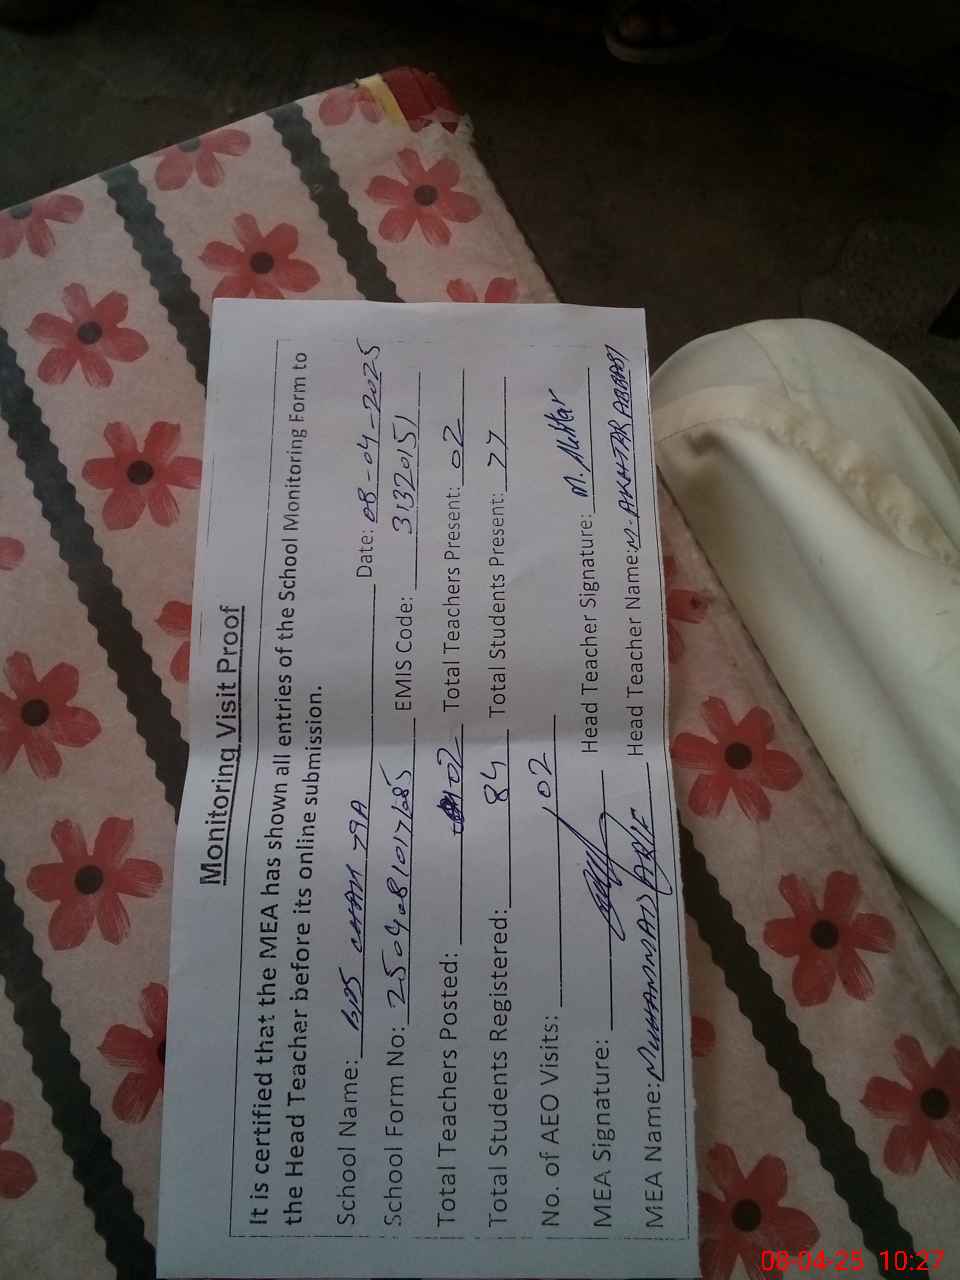 Monitoring Visit Proof
It is certified that the MEA has shown all entries of the School Monitoring Form to
the Head Teacher before its online submission.
School Name: CHAK 79A Date: 08-04-2025
School Form No: 2504081017685 EMIS Code: 31320151
Total Teachers Posted: 02 Total Teachers Present: 02
Total Students Registered: 84 Total Students Present: 27
No. of AEO Visits: 02
MEA Signature: Head Teacher Signature: M. Akhtar
MEA Name: MUHAMMAD ARIF Head Teacher Name: M. AKHTAR ABBASI
08-04-25 10:27